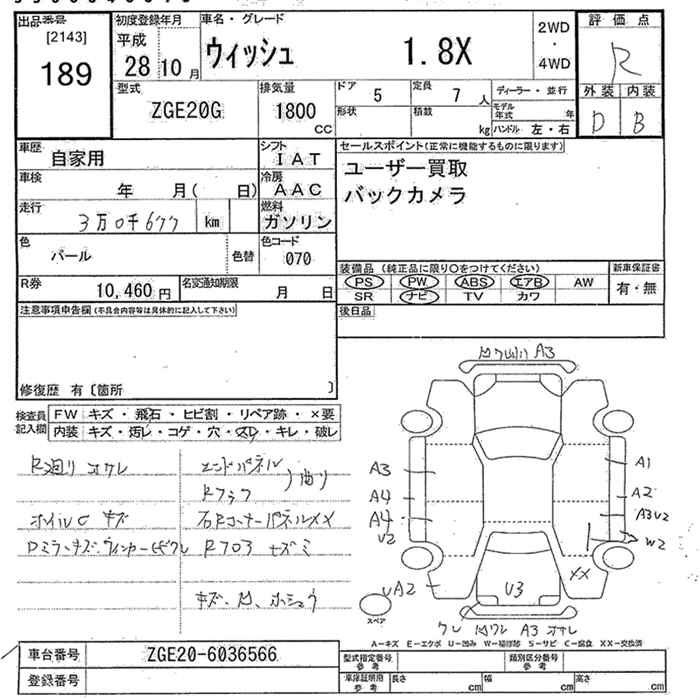 出品番号
[2143]
189
初度登録年月
平成
28 10 月
車名・グレード
ウィッシュ 1.8X
2WD
・
4WD
評価点
R
外装 内装
D B
型式
ZGE20G
排気量
1800
CC
ドア 5
定員 7 人
形状
積数
kg
ディーラー・並行
モデル年式 年
ハンドル 左・右
車歴
自家用
シフト
IAT
車検
年 月( 日)
冷房
AAC
走行
3万0千677 km
燃料
ガソリン
色
パール
色替
色コード
070
R券
10,460 円
名変通知期限
月 日
セールスポイント(正常に機能するものに限ります)
ユーザー買取
バックカメラ
装備品(純正品に限り○をつけてください)
PS PW ABS エアB AW
SR ナビ TV カワ
新車保証書
有・無
後日品
注意事項申告欄(不具合内容等は具体的に記入して下さい)
修復歴 有〔箇所 〕
検査員
記入欄
FW キズ・飛石・ヒビ割・リペア跡・×要
内装 キズ・汚レ・コゲ・穴・スレ・キレ・破レ
エンドパネル
Rフロア
曲り
ホイルC キズ
右RコーナーパネルXX
R703 キズミ
A3
A3
A4
A4
U2
UA2
A1
A2
A3U2
W2
XX
U3
A3
スペア
A－キズ E－エクボ U－凹み W－補修跡 S－サビ C－腐食 XX－交換済
車台番号 ZGE20-6036566
登録番号
型式指定番号
参考
類別区分番号
参考
車庫証明用
参考
長さ cm
幅 cm
高さ cm